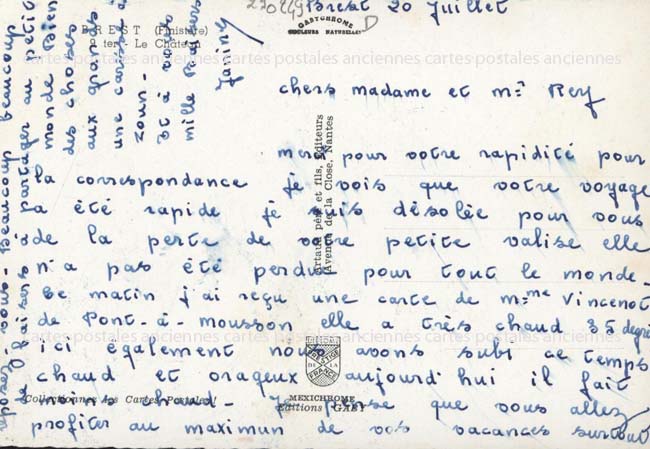 270249
D
Brest 20 Juillet
GABYCHROME
COULEURS NATURELLES
BREST (Finistère)
ter - Le Château
chers madame et mr Rey
merci pour votre rapidité pour
la correspondance je vois que votre voyage
a été rapide je suis désolée pour vous
de la perte de votre petite valise elle
n'a pas été perdue pour tout le monde -
ce matin j'ai reçu une carte de mme Vincenot
de Pont-à-mousson elle a très chaud 35 degrés
ici également nous avons subi ce temps
chaud et orageux aujourd'hui il fait
moins chaud - Je pense que vous allez
profiter au maximun de vos vacances surtout
reposez-vous - Beaucoup beaucoup
de baisers à partager au petit
monde Bien
des choses
aux grands
une caresse à
Zoun -
et à vous
mille Baisers
Janine
Artaud père et fils, Éditeurs
(Avenue de la Close, Nantes
PRESTIGE
DE LA
FRANCE
MEXICHROME
Editions "GABY"
Collectionnez les Cartes Postales !
cartes postales anciennes cartes postales anciennes cartes postales anciennes
cartes postales anciennes cartes postales anciennes cartes postales anciennes